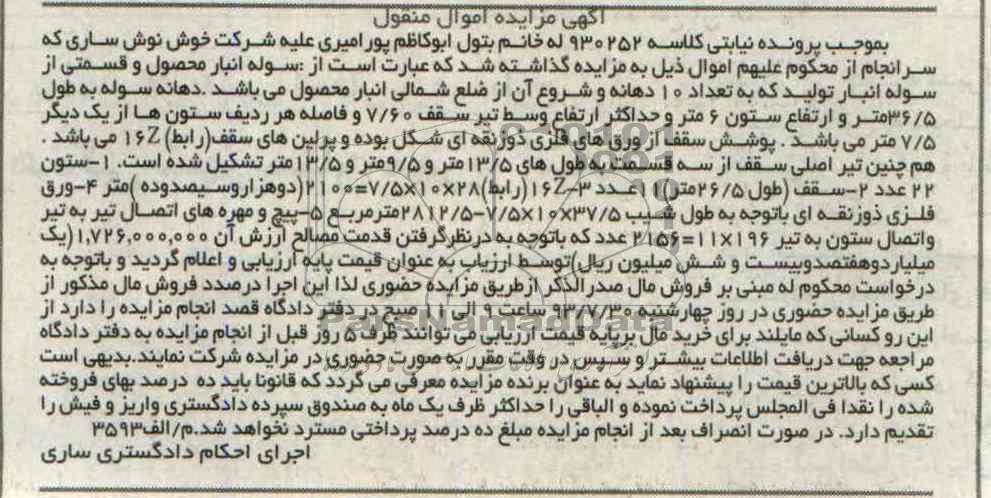 آگهی مزایده اموال منقول
بموجب پرونده نیابتی کلاسه ۹۳۰۲۵۲ له خانم بتول ابوکاظم پور امیری علیه شرکت خوش نوش ساری که
سرانجام از محکوم علیهم اموال ذیل به مزایده گذاشته شد که عبارت است از :سوله انبار محصول و قسمتی از
سوله انبار تولید که به تعداد ۱۰ دهانه و شروع آن از ضلع شمالی انبار محصول می باشد .دهانه سوله به طول
۳۶/۵متر و ارتفاع ستون ۶ متر و حداکثر ارتفاع وسط تیر سقف ۷/۶۰ و فاصله هر ردیف ستون ها از یک دیگر
۷/۵ متر می باشد . پوشش سقف از ورق های فلزی ذوزنقه ای شکل بوده و پرلین های سقف(رابط) ۱۶Z می باشد .
هم چنین تیر اصلی سقف از سه قسمت به طول های ۱۳/۵متر و ۹/۵متر و ۱۳/۵متر تشکیل شده است. ۱-ستون
۲۲ عدد ۲-سقف (طول ۲۶/۵متر)۱۱عدد ۳-۱۶Z(رابط)۲۱۰۰=۷/۵×۱۰×۲۸(دوهزاروسیصدوده )متر ۴-ورق
فلزی ذوزنقه ای باتوجه به طول شیب ۲۸۱۲/۵-۷/۵×۱۰×۳۷/۵مترمربع ۵-پیچ و مهره های اتصال تیر به تیر
واتصال ستون به تیر ۲۱۵۶=۱۱×۱۹۶ عدد که باتوجه به درنظرگرفتن قدمت مصالح ارزش آن ۱,۷۲۶,۰۰۰,۰۰۰ (یک
میلیاردوهفتصدوبیست و شش میلیون ریال)توسط ارزیاب به عنوان قیمت پایه ارزیابی و اعلام گردید و باتوجه به
درخواست محکوم له مبنی بر فروش مال صدرالذکر ازطریق مزایده حضوری لذا این اجرا درصدد فروش مال مذکور از
طریق مزایده حضوری در روز چهارشنبه ۹۳/۷/۳۰ ساعت ۹ الی ۱۰ صبح در دفتر دادگاه قصد انجام مزایده را دارد از
این رو کسانی که مایلند برای خرید مال برپایه قیمت ارزیابی می توانند ظرف ۵ روز قبل از انجام مزایده به دفتر دادگاه
مراجعه جهت دریافت اطلاعات بیشتر و سپس در وقت مقرر به صورت حضوری در مزایده شرکت نمایند.بدیهی است
کسی که بالاترین قیمت را پیشنهاد نماید به عنوان برنده مزایده معرفی می گردد که قانونا باید ده درصد بهای فروخته
شده را نقدا فی المجلس پرداخت نموده و الباقی را حداکثر ظرف یک ماه به صندوق سپرده دادگستری واریز و فیش را
تقدیم دارد. در صورت انصراف بعد از انجام مزایده مبلغ ده درصد پرداختی مسترد نخواهد شد.م/الف۳۵۹۳
اجرای احکام دادگستری ساری
ParsNamadData